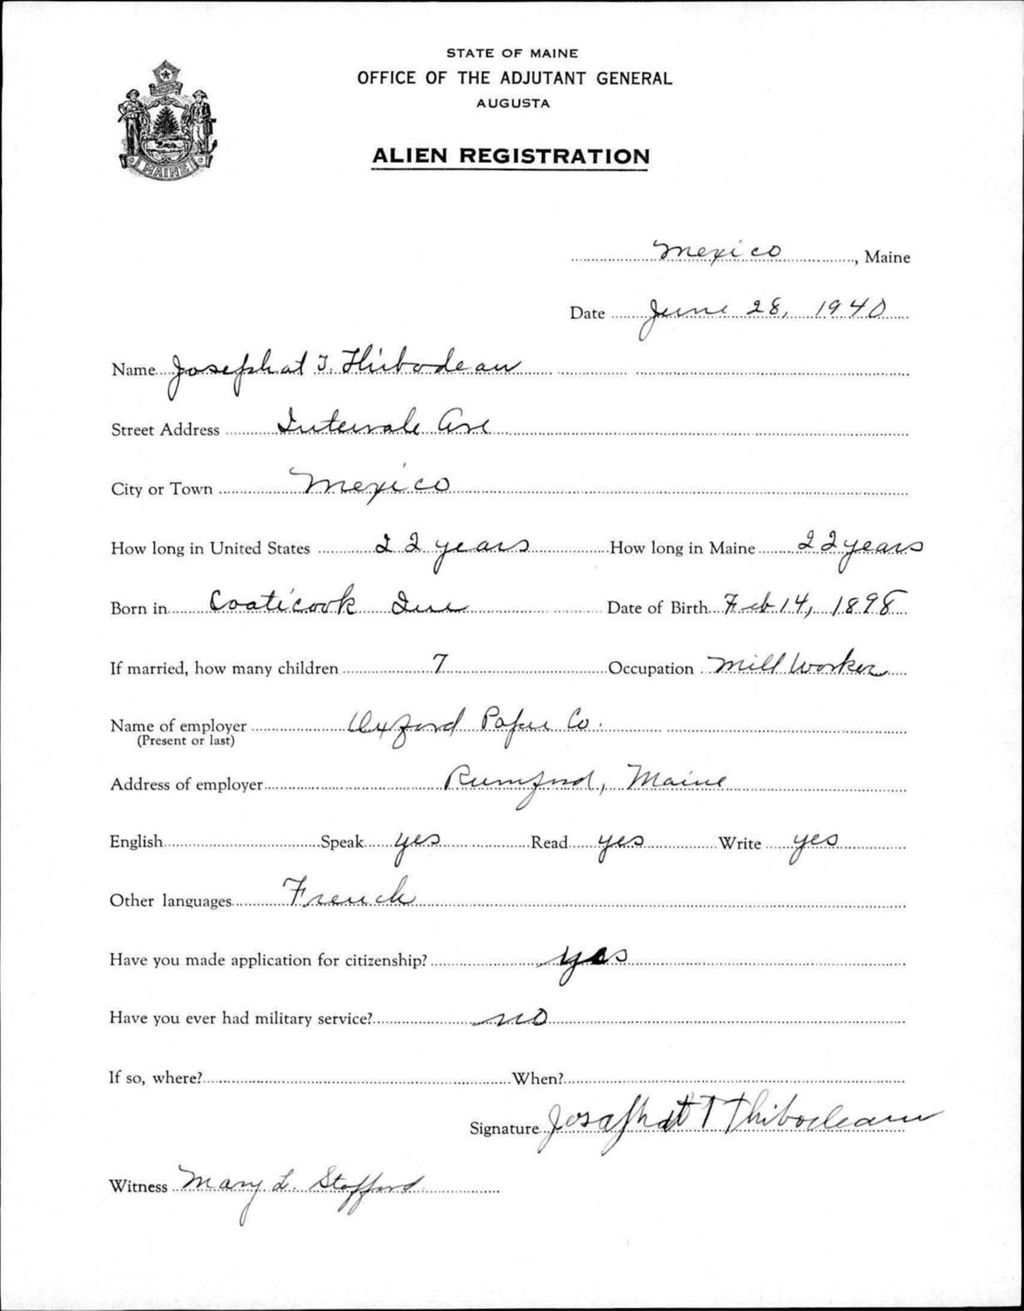 STATE OF MAINE
OFFICE OF THE ADJUTANT GENERAL
AUGUSTA
ALIEN REGISTRATION
MAINE
Mexico, Maine
Date June 28, 1940
Name Josephat T. Thibodeau
Street Address Intervale Ave
City or Town Mexico
How long in United States 22 years How long in Maine 22 years
Born in Coaticook Que Date of Birth Feb 14, 1898
If married, how many children 7 Occupation Mill Worker
Name of employer Oxford Paper Co.
(Present or last)
Address of employer Rumford, Maine
English Speak yes Read yes Write yes
Other languages French
Have you made application for citizenship? yes
Have you ever had military service? no
If so, where? When?
Signature Josaphat T Thibodeau
Witness Mary L. Stafford